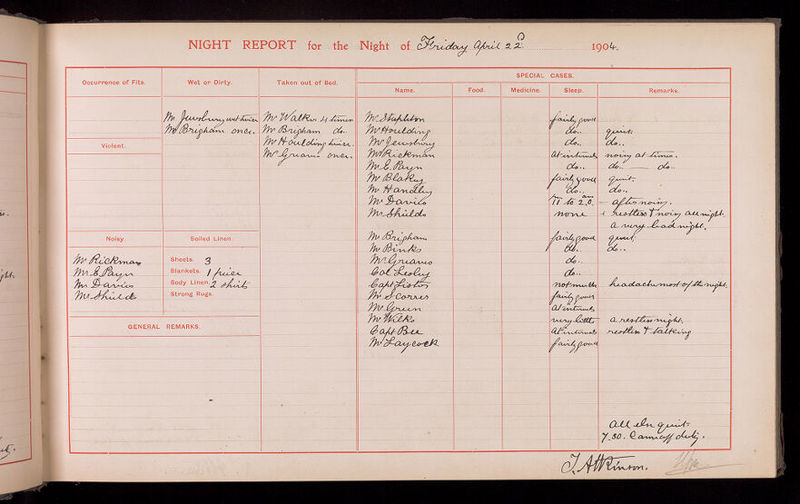 NIGHT REPORT for the Night of Friday April 22 1904.
SPECIAL CASES.
Occurrence of Fits. Wet or Dirty. Taken out of Bed. Name. Food. Medicine. Sleep. Remarks.
Mr Jewsbury wet twice Mr Walker 4 times Mr Stapleton fairly good
Mr Brigham once. Mr Brigham do. Mr Houlding do.. quiet.
Violent. Mr Houlding twice. Mr Jewsbury do.. do..
Mr Greaves once. Mr Rickman at intervals noisy at times.
Mr E. Payn do.. do.. do..
Mr Blakey fairly good quiet.
Mr Handley do.. do..
Mr Davies 11 pm to 2.0. am after noisy.
Mr Shields none restless & noisy all night.
a very bad night.
Noisy. Soiled Linen. Mr Brigham fairly good quiet.
Mr Binks do.. do..
Mr Rickman Sheets. 3 Mr Greaves do..
Mr E. Payn Blankets. 1 piece Col Lesley do..
Mr Davies Body Linen. 2 shirts not much headache most of the night.
Mr Shields Strong Rugs. fairly good
Mr Green at intervals
Mr Wilks very little a restless night.
GENERAL REMARKS. Capt Bee at intervals restless & talking
Mr Laycock fairly good
All else quiet.
7.30. Came off duty.
J. Atkinson.